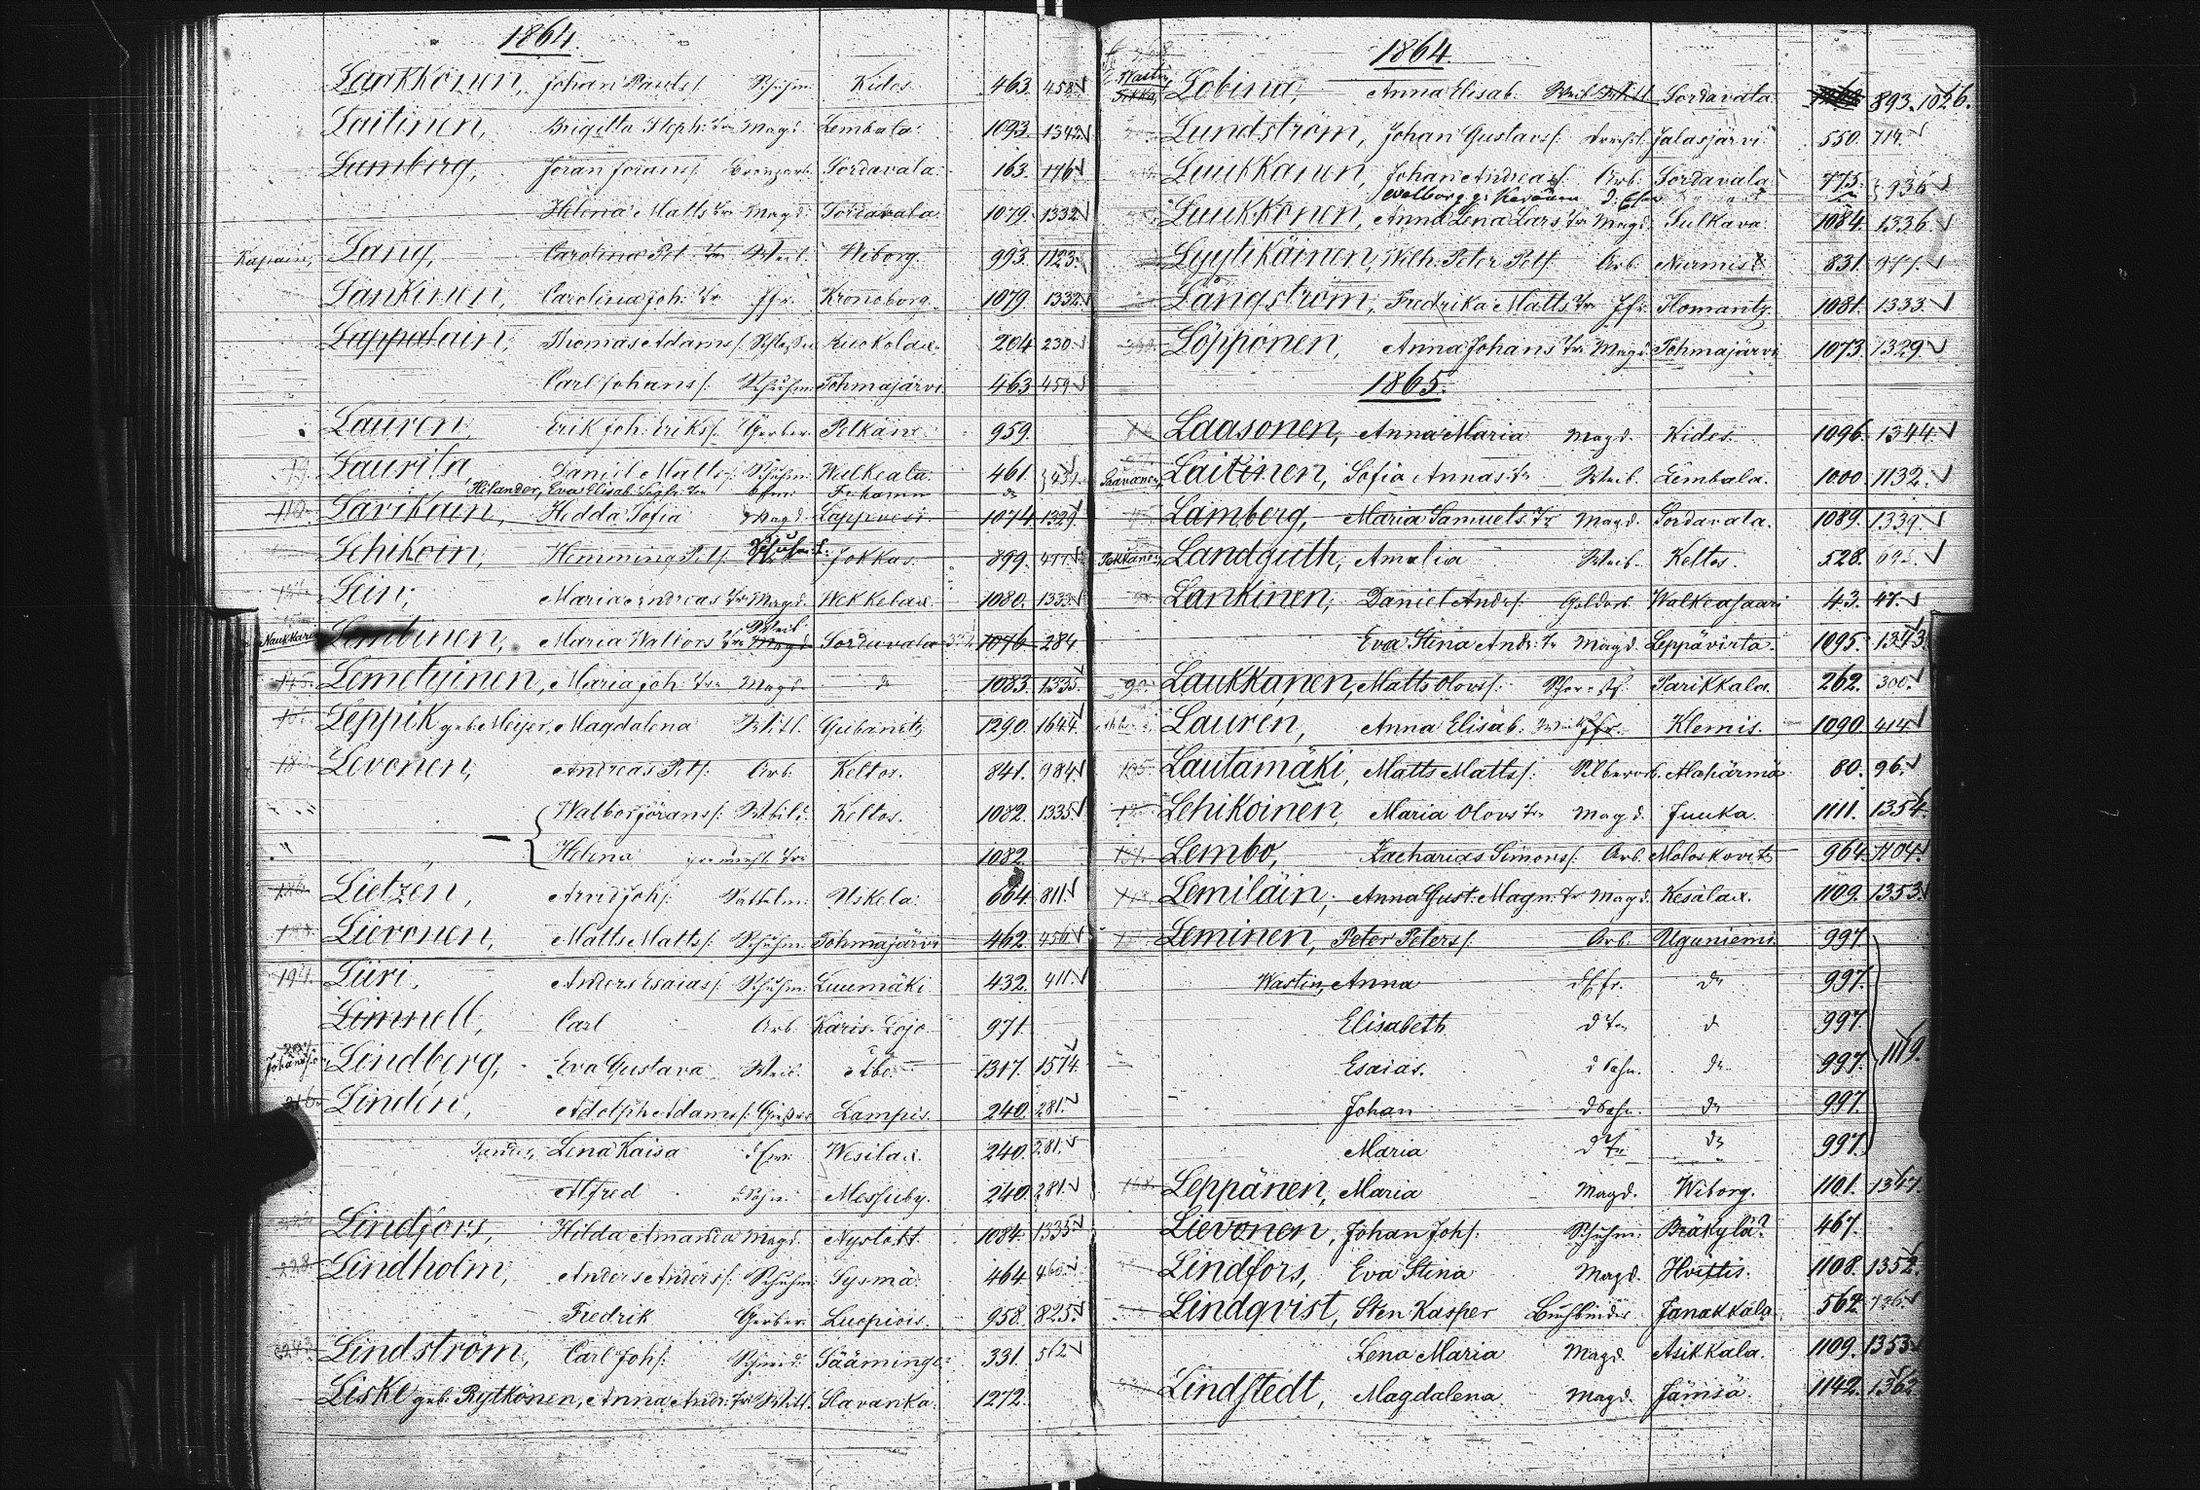 1864.
Laukkonen, Johan Paulss. Schuhm. Kides. 463. 458
Laitinen, Brigetta Steph: Tr Magd. Lembala. 1093. 1342
Lumberg, Jöran Jöranss. Sordavala. 163. 176
Helena Matts Tr Magd. Sordavala 1079. 1332
Lang, Carolina Pet. Tr Weib. Wiborg. 993. 1123.
Lankinen, Carolina Joh: Tr Jfr. Kronoborg. 1079. 1332
Lappalain, Thomas Adams s. Kuckolax. 204 230
Carl Johanss. Schuhm. Tohmajärvi. 463. 459
Lauren, Erik Joh: Erikss. Gerber Pelkäne. 959.
Laurila, Daniel Mattss. Schuhm. Walkeala. 461.
Hilander, Eva Elisab.
Lavikain, Hedda Sofia Magd. Lappvesi. 1074. 1329
Lehikoin, Hemming Pets. Jokkas. 899. 477
Lein, Maria Andreas Tr Magd. Wekkelax. 1080. 1333
Lembinen, Maria Tr Magd. Sordavala 1076 284
Lemetyinen, Maria Joh: Tr Magd. d 1083. 1335
Leppik geb. Meijer, Magdalena Gubanitz 1290. 1644
Levonen, Andreas Pets. Arb. Keltos. 841. 984
Walbor Jöranss. Keltos. 1082. 1335
Helena 1082
Lietzén, Arvid Johs. Sattelm. Uskela. 664. 811
Lievonen, Matts Mattss. Schuhm. Tohmajärvi 462. 456
194. Liiri, Anders Esaiass. Schuhm. Luumäki 432. 411
Limnell, Carl Arb. Karis-Lojo. 971.
Lindberg, Eva Gustava Weib. Åbo. 1317. 1574.
Lindén, Adolph Adamss. Lampis. 240. 281.
Lena Kaisa Wesilax. 240. 281.
Alfred Messuby. 240. 281.
Lindfors, Hilda Amanda Magd. Nyslott. 1084. 1335
Lindholm, Anders Anderss. Schuhm. Sysmä. 464. 460
Fredrik Gerber. Luopiois. 958. 825.
Lindström, Carl Johs. Schneid. Sääminge. 331. 562
Liske geb. Rytkönen, Anna Andr. Tr Slavanka. 1272.
1864.
Wastin
Lobina, Anna Elisab. Sordavala 893. 1026.
Lundström, Johan Gustavss. Jalasjärvi 550. 714.
Luukkain, Johan Andreass. Arb. Sordavala 775. 936
Walborg g.
Luukkonen, Anna Lena Lars Tr Magd. Sulkava. 1084. 1336.
Lyytikäinen, Wilh. Peter Pets. Arb. Nurmis. 831. 977.
Långström, Fredrika Matts Tr Jfr. Ilomantz 1081. 1333.
Löppönen, Anna Johans Tr Magd. Tohmajärvi 1073. 1329
1865.
Laasonen, Anna Maria Magd. Kides. 1096. 1344.
Laitinen, Sofia Annas Tr Weib. Lembala. 1000. 1132.
Lamberg, Maria Samuels Tr Magd. Sordavala. 1089. 1339
Landguth, Amalia Weib. Keltos. 528.
Lankinen, Daniel Ands. Goldarb. Walkeasaari 43. 47.
Eva Stina Andr. Tr Magd. Leppävirta. 1095. 1343.
Laukkanen, Matts Olovss. Parikkala. 262. 300.
Lauren, Anna Elisab. Jfr. Klemis. 1090. 414
Lautamäki, Matts Mattss. Silberarb. Alahärmä 80. 96.
Lehikoinen, Maria Olovs Tr Magd. Juuka. 1111. 1354.
Lembo, Zacharias Simonss. Arb. Moloskovitz 964. 1104.
Lemiläin, Anna Gust. Magn. Tr Magd. Kesälax. 1109. 1353
Leminen, Peter Peterss. Arb. Uguniemi. 997.
Wastin, Anna d Efr. do 997.
Elisabeth d Tr d 997.
Esaias. d Sohn. do 997. 1119.
Johan d Sohn. do 997.
Maria d Tr do 997.
Leppänen, Maria Magd. Wiborg. 1101. 1347.
Lievonen, Johan Johs. Schuhm. Bräkylä? 467.
Lindfors, Eva Stina Magd. Hvittis. 1108. 1352.
Lindqvist, Sten Kasper Buchbinder Janakkala. 562. 726.
Lena Maria Magd. Asikkala. 1109. 1353
Lindstedt, Magdalena Magd. Jämsä. 1142. 1362